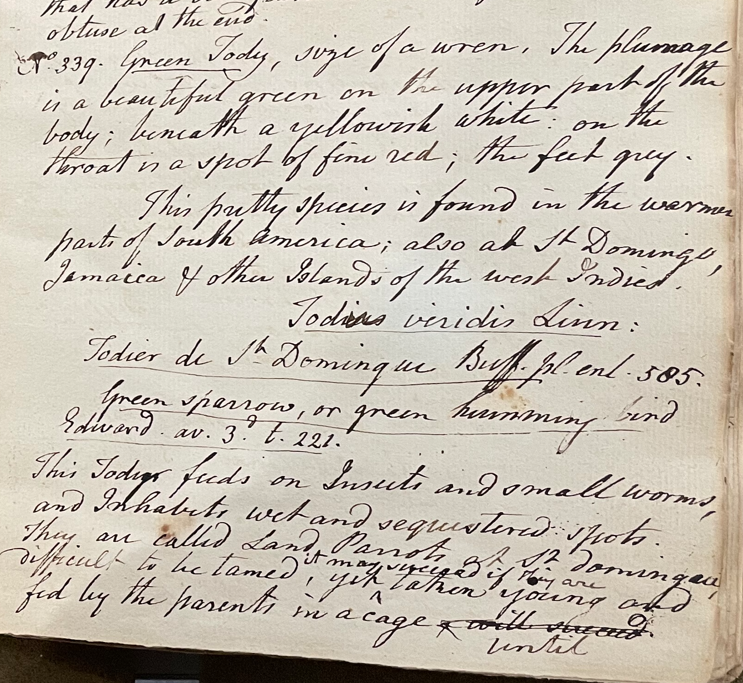 that has a
obtuse at the end.
No. 339. Green Tody, size of a wren. The plumage
is a beautiful green on the upper part of the
body; beneath a yellowish white: on the
throat is a spot of fine red; the feet grey.
This pretty species is found in the warmer
parts of South America; also at St Domingo,
Jamaica & other Islands of the west Indies.
Todus viridis Linn:
Todier de St Domingue Buff. pl. enl. 585.
Green sparrow, or green humming bird
Edward. av. 3d. t. 221.
This Tody feeds on Insects and small worms,
and Inhabits wet and sequestered spots.
They are called Land Parrots at St domingue,
it may succeed if they are
difficult to be tamed, yet taken young and
fed by the parents in a cage will succeed.
until